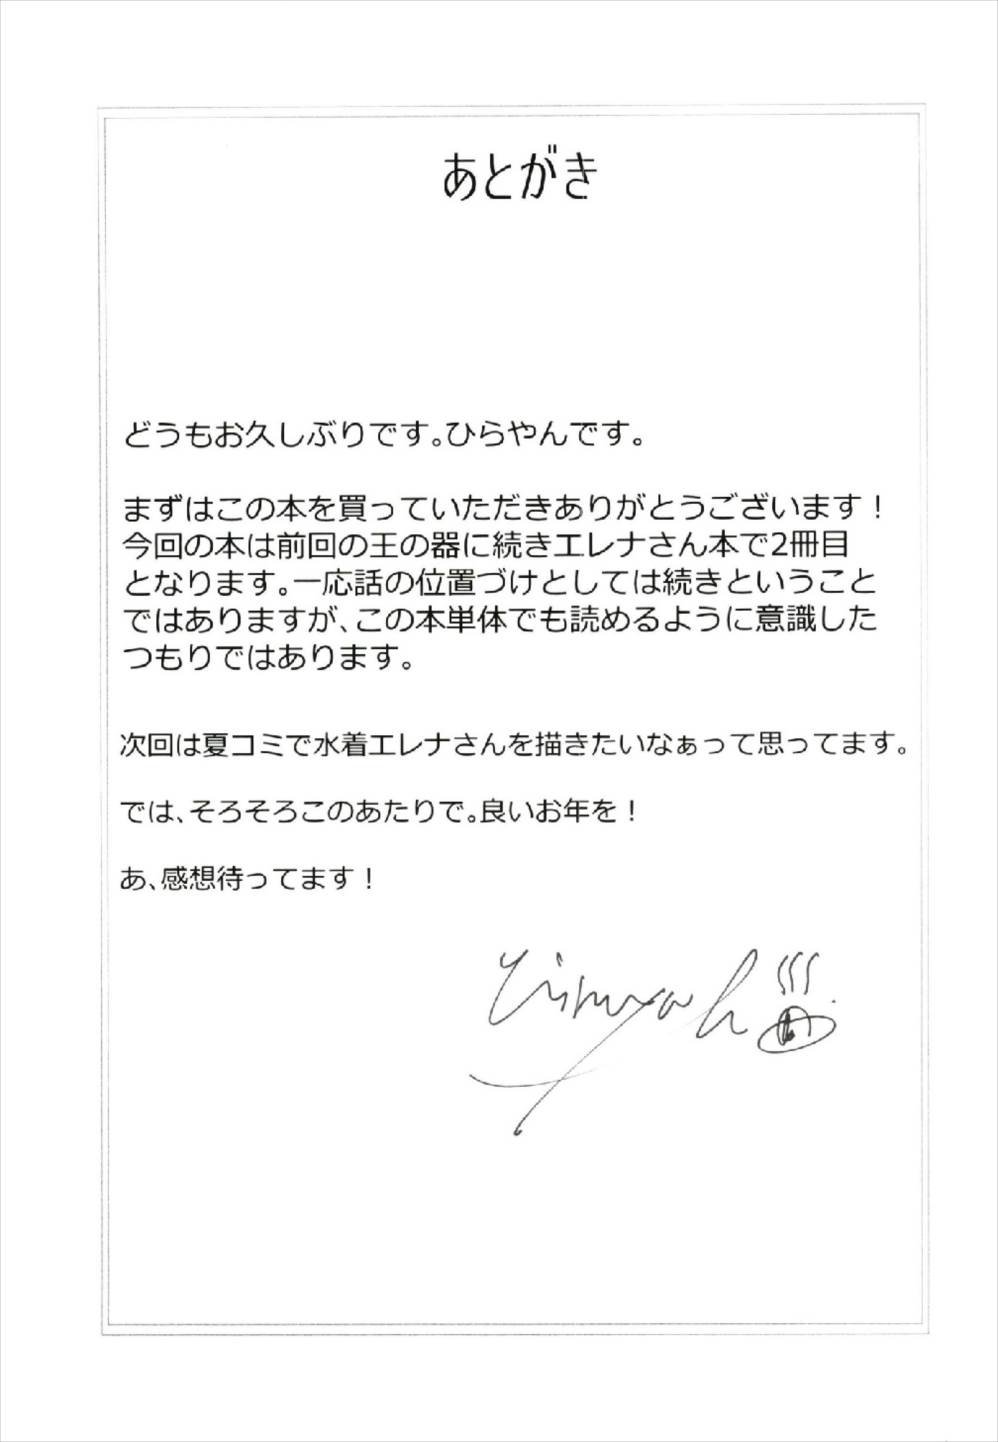 あとがき
どうもお久しぶりです。ひらやんです。
まずはこの本を買っていただきありがとうございます！
今回の本は前回の王の器に続きエレナさん本で2冊目
となります。一応話の位置づけとしては続きということ
ではありますが、この本単体でも読めるように意識した
つもりではあります。
次回は夏コミで水着エレナさんを描きたいなぁって思ってます。
では、そろそろこのあたりで。良いお年を！
あ、感想待ってます！